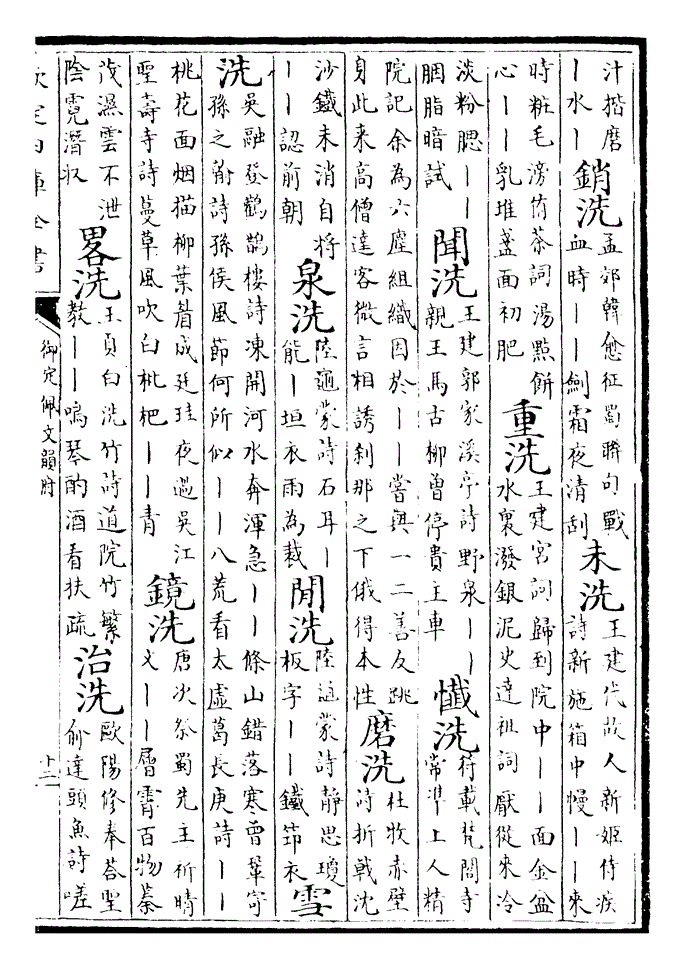 汁揩磨
丨水丨銷洗孟郊韓愈征蜀聯句戰
血時丨丨劍霜夜清刮未洗王建代故人新姬侍疾
詩新施箱中幔丨丨來
時粧毛滂侑茶詞湯㸃餅
心丨丨乳堆盞面初肥重洗王建宮詞歸到院中丨丨面金盆
水裏潑銀泥史達祖詞厭從來冷
淡粉腮丨丨
胭脂暗試聞洗王建郭家溪亭詩野泉丨丨
親王馬古柳曽停貴主車懺洗符載梵閣寺
常凖上人精
院記余為六塵組織因於丨丨嘗與一二善友跳
身此来高僧達客微言相誘刹那之下俄得本性磨洗杜牧赤壁
詩折戟沈
沙鐵未消自將
丨丨認前朝泉洗陸龜蒙詩石耳丨
能丨垣衣雨為裁閒洗陸龜蒙詩靜思瓊
板字丨丨鐵笻衣雪
洗吳融登鸛鵲樓詩凍開河水奔渾急丨丨條山錯落寒曾鞏寄
孫之翰詩孫侯風節何所似丨丨八荒看太虛葛長庚詩丨丨
桃花面烟描柳葉眉成廷珪夜過吳江
聖壽寺詩蔓草風吹白枇杷丨丨青鏡洗唐次祭蜀先主祈晴
文丨丨層霄百物蓁
茂濕雲不泄
陰霓潛収畧洗王貞白洗竹詩道院竹繁
教丨丨鳴琴酌酒看扶疏治洗歐陽修奉荅聖
俞達頭魚詩嗟
欽定四庫全書
御定佩文韻府
十二